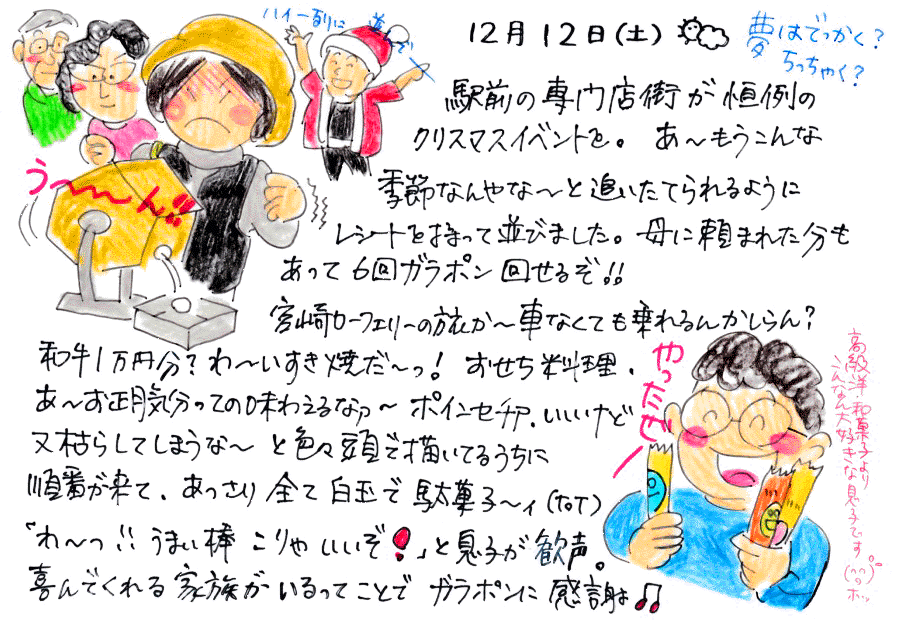 ハイ一列に並んで
12月12日(土)
夢はでっかく?
ちっちゃく?
駅前の専門店街が恒例の
クリスマスイベントを。あ〜もうこんな
季節なんやな〜と追いたてられるように
レシートを持って並びました。母に頼まれた分も
あって6回ガラポン回せるぞ!!
う〜〜ん!!
宮崎カーフェリーの旅か〜車なくても乗れるんかしらん?
和牛1万円分?わ〜いすき焼だ〜っ!おせち料理.
あ〜お正月気分っての味わえるなァ〜ポインセチア.いいけど
又枯らしてしまうな〜と色々頭で描いてるうちに
順番が来て、あっさり全て白玉で駄菓子〜ィ(ToT)
「わ〜っ!!うまい棒こりゃいいぞ!」と息子が歓声。
喜んでくれる家族がいるってことでガラポンに感謝♪
やったぜ〜
高級洋・和菓子より
こんなん大好きな息子です(^^)ホッ